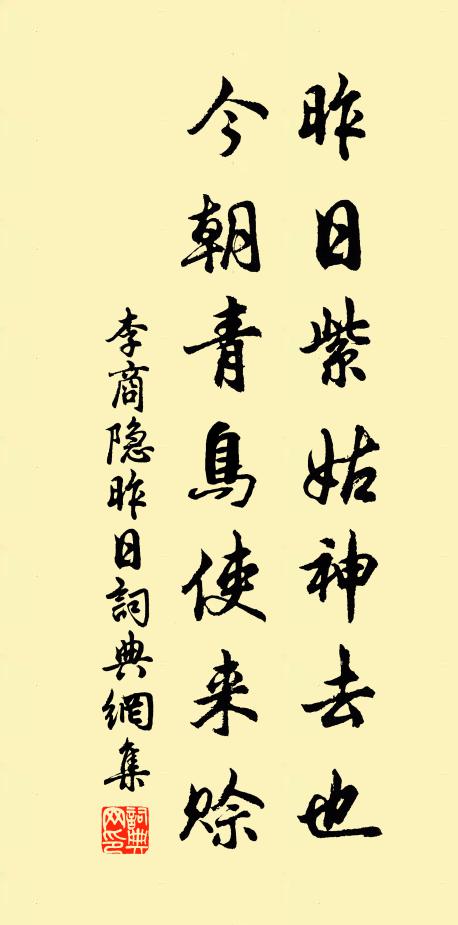 昨日紫姑神去也
今朝青鳥使来賒
李商隐昨日詞典網集
詞典網印